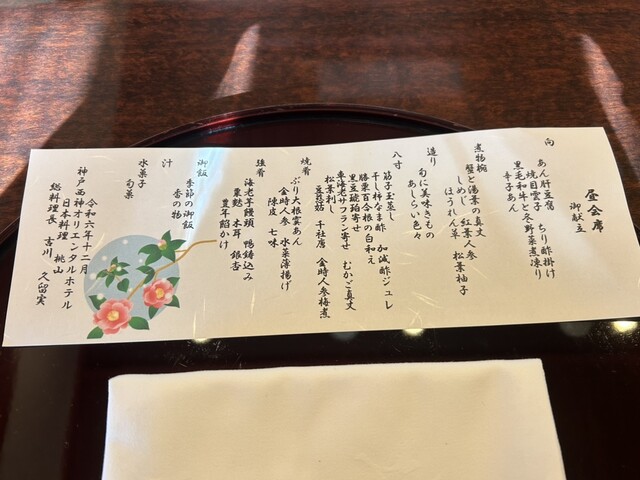 昼会席
御献立
向
あん肝豆腐 ちり酢掛け
焼目雲子
黒毛和牛と冬野菜煮凍り
辛子あん
煮物椀
蟹と湯葉の真丈
しめじ 紅葉人参
ほうれん草 松葉柚子
造り
旬に美味きもの
あしらい色々
八寸
筋子玉蒸し 加減酢ジュレ
干し柿なま酢
勝栗百合根の白和え
黒豆琥珀寄せ
車海老サフラン寄せ むかご真丈
松葉刺し
豆苞茹 千社唐 金時人参梅煮
焼肴
ぶり大根雲あん
金時人参 水菜薄揚げ
陳皮 七味
強肴
海老芋饅頭 鴨鋳込み
粟麩 木耳 銀杏
豊年餡かけ
御飯
季節の御飯
香の物
汁
水菓子
旬菓
令和六年十二月
神戸西神オリエンタルホテル
日本料理 桃山
総料理長 吉川 久留実